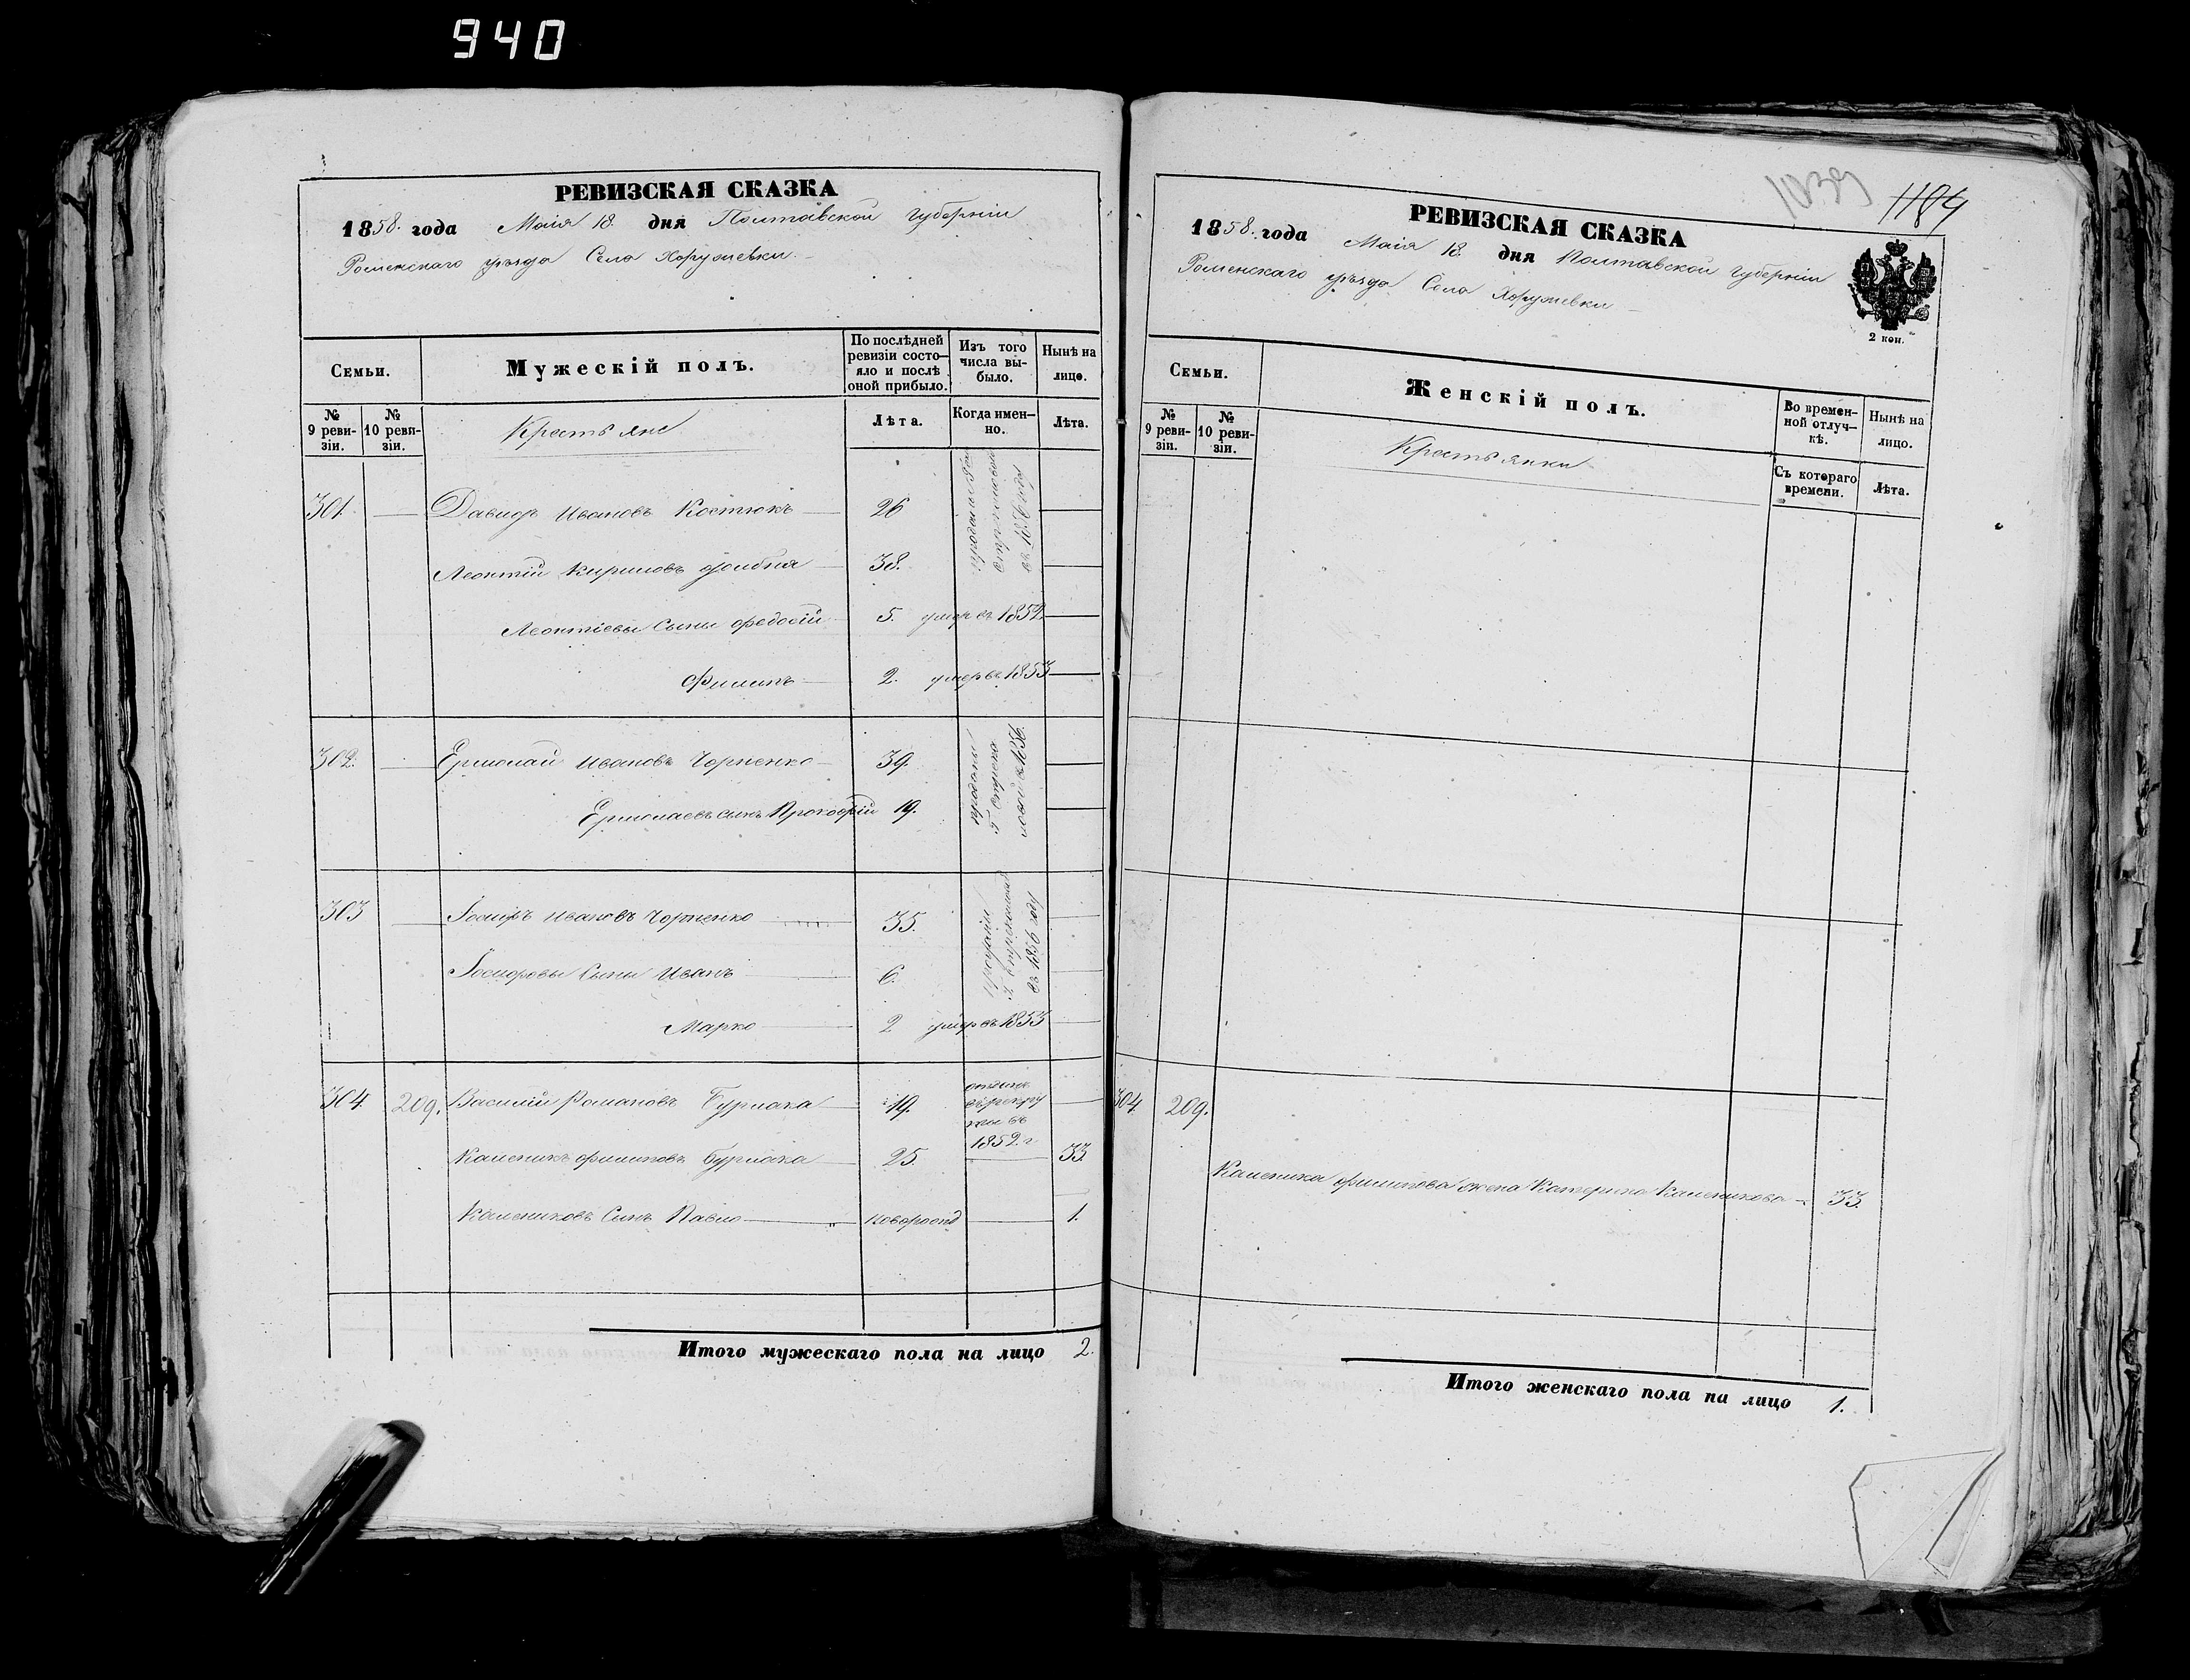 940
РЕВИЗСКАЯ СКАЗКА
1858. года Маія 18. дня Полтавской Губерніи
Роменскаго уѣзда Села Хоружевки.
Семьи.
Мужескій полъ.
По послѣдней ревизіи состояло и послѣ оной прибыло.
Изъ того числа выбыло.
Нынѣ на лице.
№ 9 ревизіи.
№ 10 ревизіи.
Крестьяне
Лѣта.
Когда именно.
Лѣта.
301. Давидъ Ивановъ Костюкъ 26
въ 1856 году
Леонтій Кириловъ 38.
Леонтіевы Сыны Федосій 5. умеръ въ 1852
Филипъ 2. умеръ въ 1853
302. Ермолай Ивановъ Чорненко 39.
проданы
Г.
1856.
Ермолаевъ сынъ Прокофій 19.
303 Іосифъ Ивановъ Чорненко 35.
въ 1856 году
Іосифовы Сыны Иванъ 6.
Марко 2 умеръ въ 1853
304. 209. Василій Романовъ Бурлака 19.
отданъ
въ рекру
ты въ
1852. г
Каленикъ Филиповъ Бурлака 25. 33
Калениковъ Сынъ Павло новорожд 1.
Итого мужескаго пола на лицо 2.
1039
1184
РЕВИЗСКАЯ СКАЗКА
1858. года Маія 18. дня Полтавской Губерніи
Роменскаго уѣзда Села Хоружевки
2 коп.
Семьи.
Женскій полъ.
Во временной отлучкѣ.
Нынѣ на лицо.
№ 9 ревизіи.
№ 10 ревизіи.
Крестьянки
Съ котораго времени.
Лѣта.
304. 209.
Каленика Филипова жена Катерина Каленикова 33.
Итого женскаго пола на лицо 1.